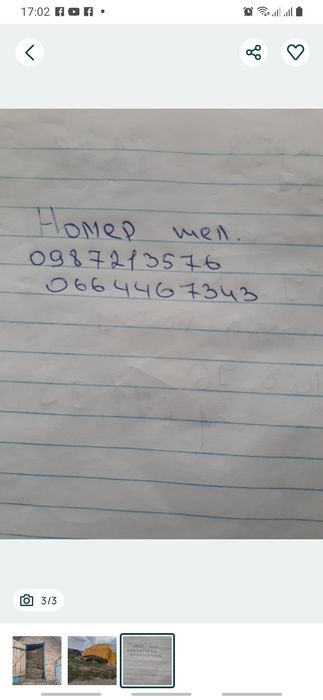 17:02
Номер тел.
0987213576
0664467343
3/3